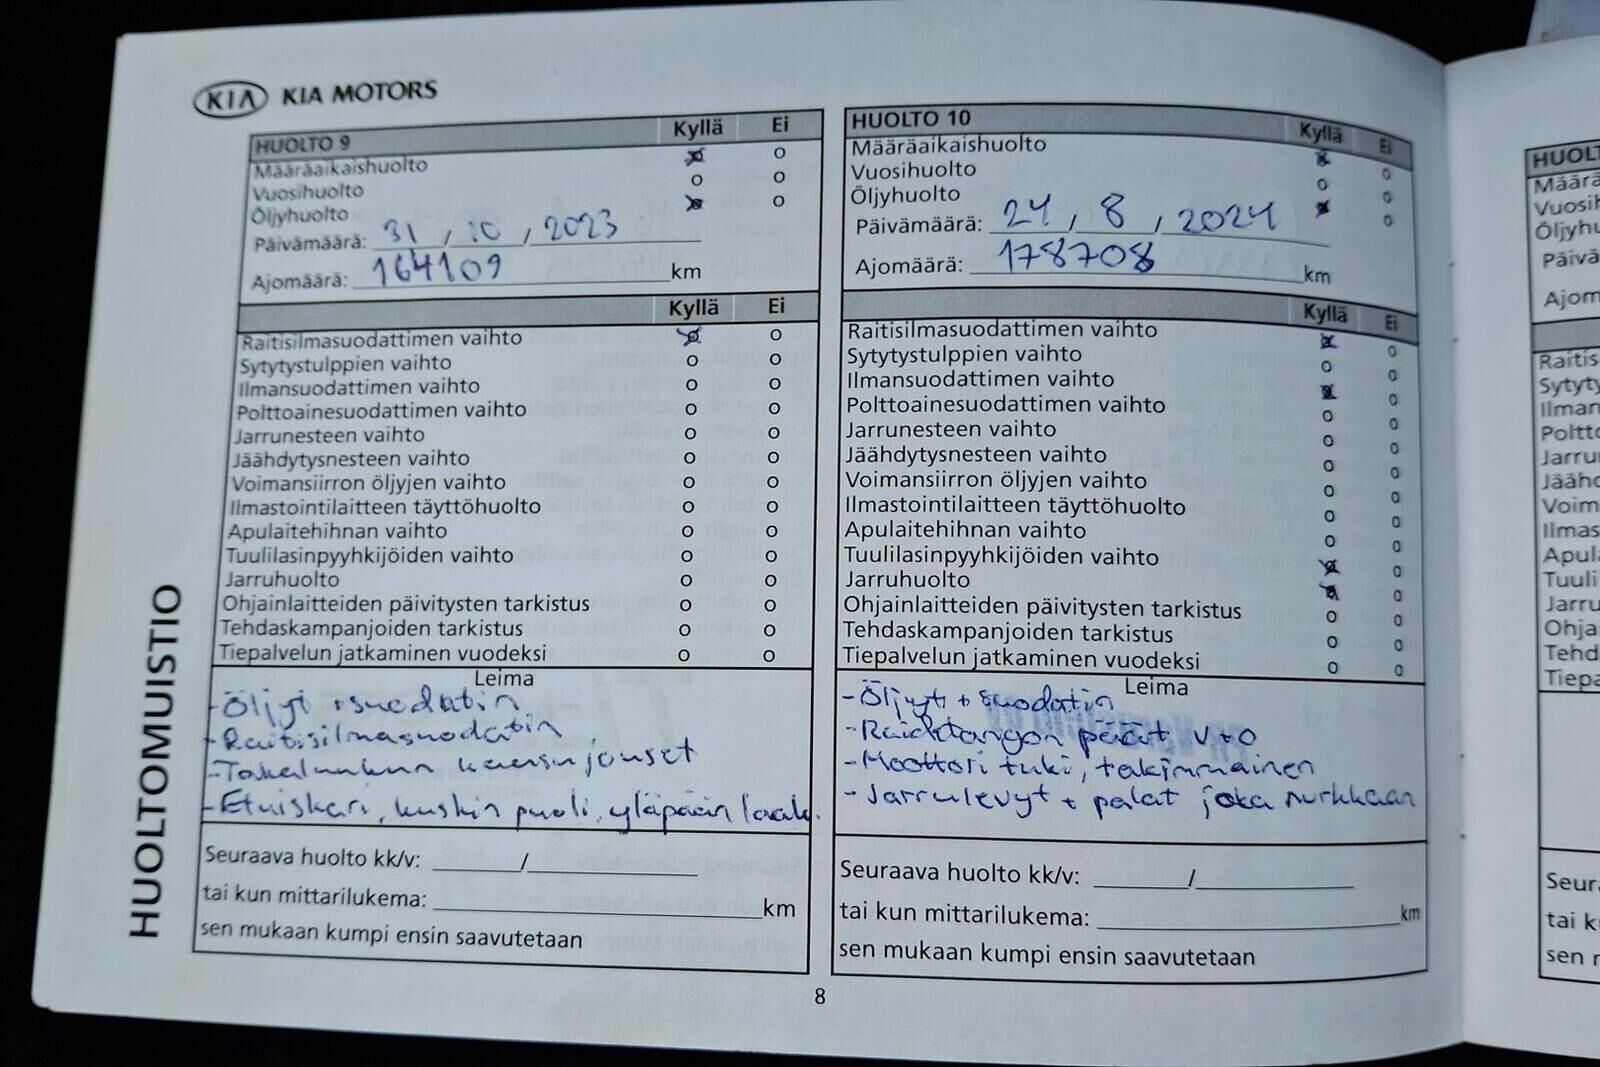 KIA KIA MOTORS
HUOLTOMUISTIO
HUOLTO 9 Kyllä Ei
Määräaikaishuolto
Vuosihuolto
Öljyhuolto
Päivämäärä: 31 / 10 / 2023
Ajomäärä: 164109 km
Kyllä Ei
Raitisilmasuodattimen vaihto
Sytytystulppien vaihto
Ilmansuodattimen vaihto
Polttoainesuodattimen vaihto
Jarrunesteen vaihto
Jäähdytysnesteen vaihto
Voimansiirron öljyjen vaihto
Ilmastointilaitteen täyttöhuolto
Apulaitehihnan vaihto
Tuulilasinpyyhkijöiden vaihto
Jarruhuolto
Ohjainlaitteiden päivitysten tarkistus
Tehdaskampanjoiden tarkistus
Tiepalvelun jatkaminen vuodeksi
Leima
- Öljyt + suodatin
- Raitisilmasuodatin
- Takaluukun kaasujouset
- Etuiskari, kuskin puoli, yläpään laak.
Seuraava huolto kk/v: /
tai kun mittarilukema: km
sen mukaan kumpi ensin saavutetaan
HUOLTO 10 Kyllä Ei
Määräaikaishuolto
Vuosihuolto
Öljyhuolto
Päivämäärä: 24 / 8 / 2024
Ajomäärä: 178708 km
Kyllä Ei
Raitisilmasuodattimen vaihto
Sytytystulppien vaihto
Ilmansuodattimen vaihto
Polttoainesuodattimen vaihto
Jarrunesteen vaihto
Jäähdytysnesteen vaihto
Voimansiirron öljyjen vaihto
Ilmastointilaitteen täyttöhuolto
Apulaitehihnan vaihto
Tuulilasinpyyhkijöiden vaihto
Jarruhuolto
Ohjainlaitteiden päivitysten tarkistus
Tehdaskampanjoiden tarkistus
Tiepalvelun jatkaminen vuodeksi
Leima
- Öljyt + suodatin
- Raidetangon päät V+O
- Moottori tuki, takimmainen
- Jarrulevyt + palat joka nurkkaan
Seuraava huolto kk/v: /
tai kun mittarilukema: km
sen mukaan kumpi ensin saavutetaan
8